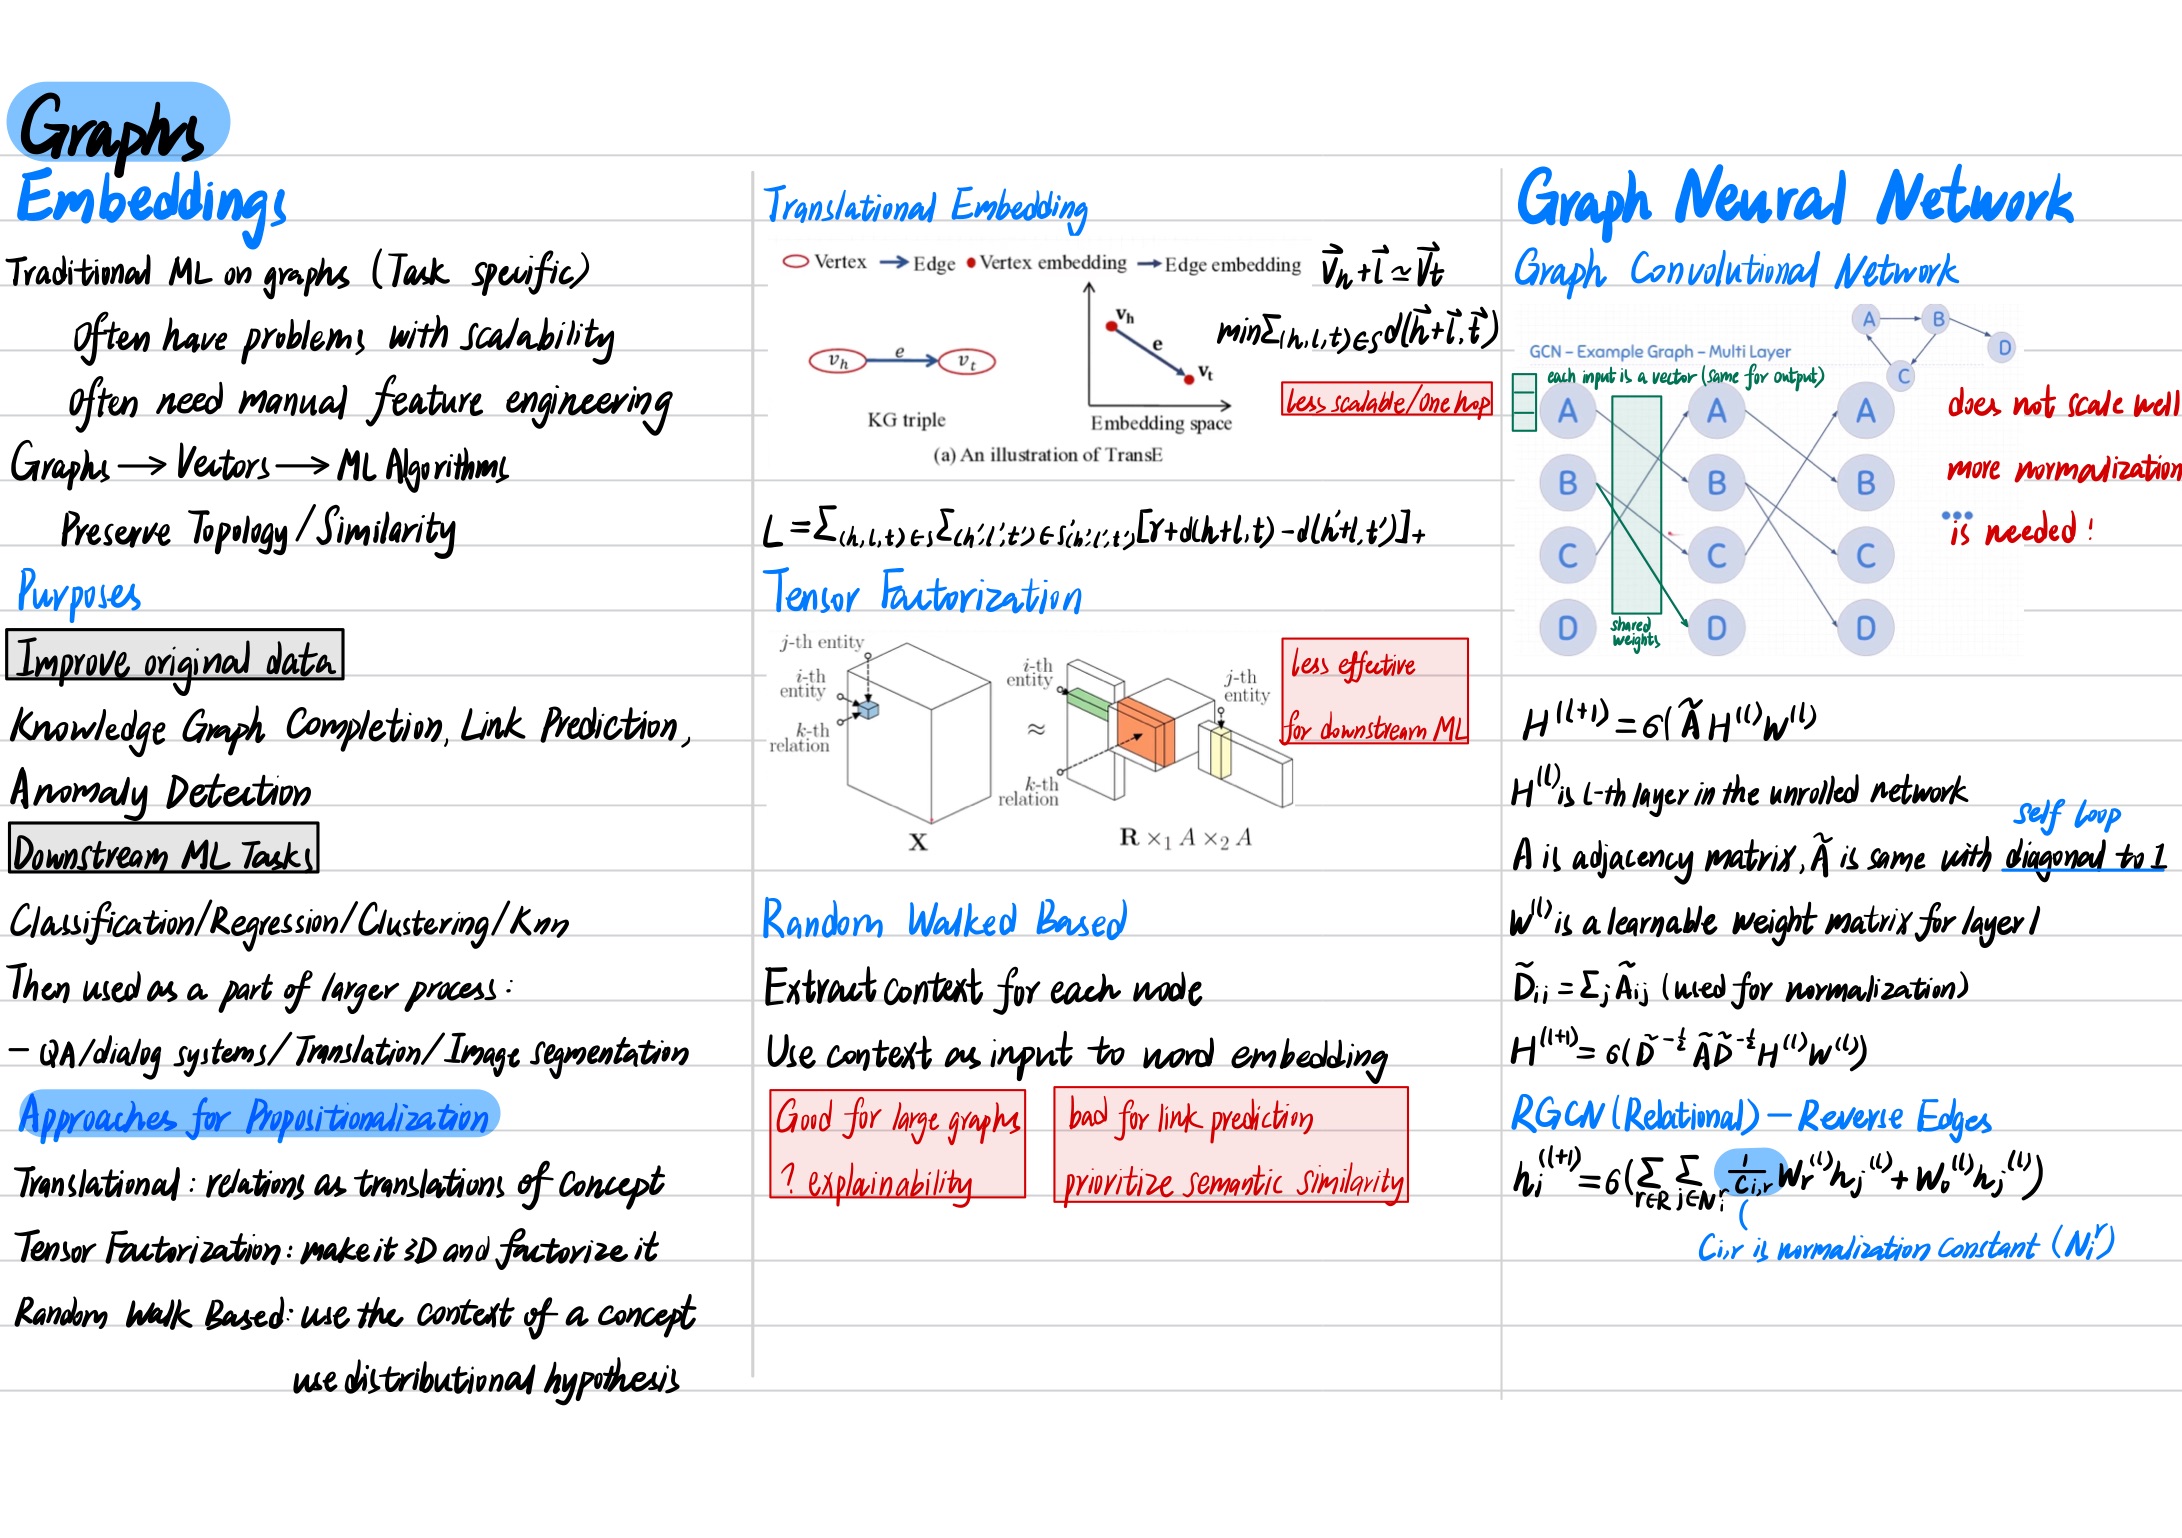 Graphs
Embeddings
Traditional ML on graphs (Task specific)
Often have problems with scalability
Often need manual feature engineering
Graphs → Vectors → ML Algorithms
Preserve Topology / Similarity
Purposes
Improve original data
Knowledge Graph Completion, Link Prediction,
Anomaly Detection
Downstream ML Tasks
Classification/Regression/Clustering/Knn
Then used as a part of larger process:
- QA/dialog systems/Translation/Image segmentation
Approaches for Propositionalization
Translational: relations as translations of concept
Tensor Factorization: make it 3D and factorize it
Random Walk Based: use the context of a concept
use distributional hypothesis
Translational Embedding
Vertex → Edge • Vertex embedding → Edge embedding
v⃗h + l⃗ ≃ v⃗t
min Σ(h,l,t)∈S d(h⃗+l⃗, t⃗)
vh e vt
vh
e
vt
less scalable/one hop
KG triple
Embedding space
(a) An illustration of TransE
L = Σ(h,l,t)∈S Σ(h',l',t')∈S'(h',l',t') [r+d(h+l,t) - d(h'+l,t')]+
Tensor Factorization
j-th entity
i-th
entity
k-th
relation
X
≈
i-th
entity
j-th
entity
k-th
relation
R ×1 A ×2 A
less effective
for downstream ML
Random Walked Based
Extract context for each node
Use context as input to word embedding
Good for large graphs
? explainability
bad for link prediction
prioritize semantic similarity
Graph Neural Network
Graph Convolutional Network
A B
D
C
GCN – Example Graph – Multi Layer
each input is a vector (same for output)
A A A
B B B
C C C
D D D
shared
weights
does not scale well
more normalization
...
is needed!
H^(l+1) = 6(Ã H^(l) W^(l)
H^(l) is l-th layer in the unrolled network
self loop
A is adjacency matrix, Ã is same with diagonal to 1
W^(l) is a learnable weight matrix for layer l
D̃ii = Σj Ãij (used for normalization)
H^(l+1) = 6(D̃^-½ Ã D̃^-½ H^(l) W^(l))
RGCN (Relational) — Reverse Edges
hi^(l+1) = 6(Σr∈R Σj∈Ni^r 1/Ci,r Wr^(l) hj^(l) + Wo^(l) hj^(l))
Ci,r is normalization constant (Ni^r)